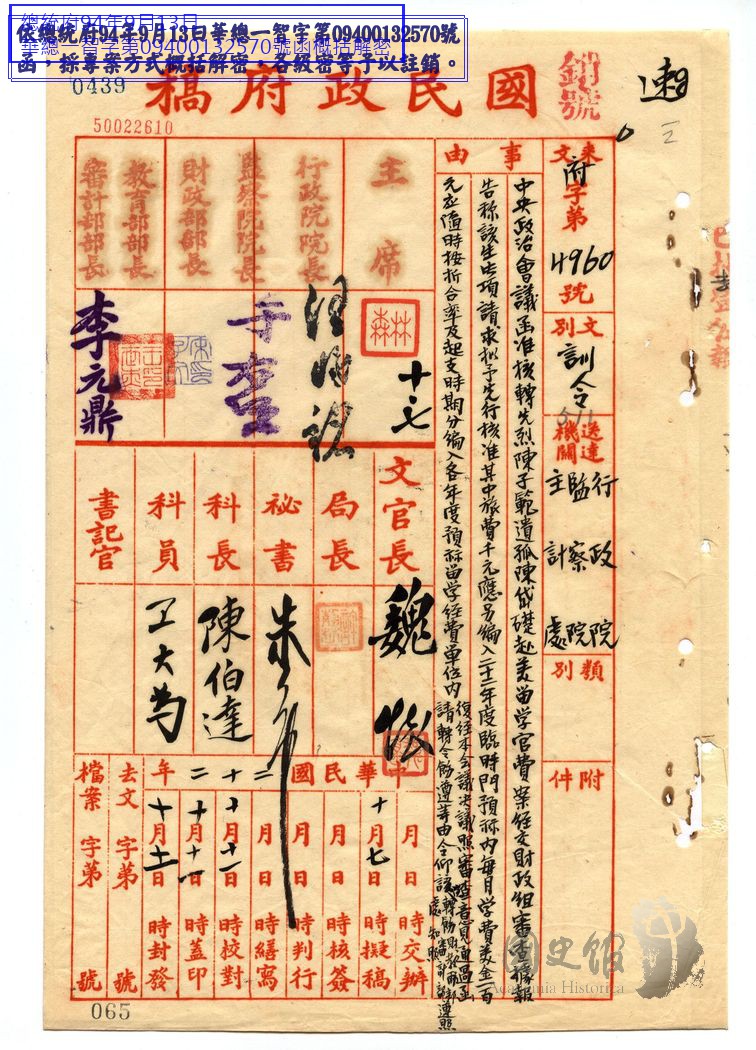 總統府94年9月13日
華總一智字第09400132570號函概括解密
依總統府94年9月13日華總一智字第09400132570號
函，採專案方式概括解密，各級密等予以註銷。
0439
50022610
國民政府稿
銷號
速
來文
府字第
4960
號
文別
訓令
送達機關
行政院
監察院
主計處
類別
附件
事由
中央政治會議函准核轉先烈陳子範遺孤陳岱礎赴美留学官費案經交財政組審查據報
告称該生出項請求拟予先行核准其中旅費千元應另編入二十二年度臨時門預祘内每月学費美金一百
元應随時按折合率及起支時期分編入各年度預祘留学經費单位内
復經本会議决議照審查意見通過函
請轉令飭遵等由令仰該
主席
行政院院長
監察院院長
財政部部長
教育部部長
審計部部長
林森
十、七
李元鼎
文官長
魏懷
局長
祕書
科長
陳伯達
科員
王大為
書記官
中華民國二十二年
月日時交辦
十月七日時擬稿
月日時核簽
月日時判行
月日時繕寫
十月十一日時校對
十月十一日時蓋印
十月十一日時封發
去文字第號
檔案字第號
國史館
Academia Historica
065